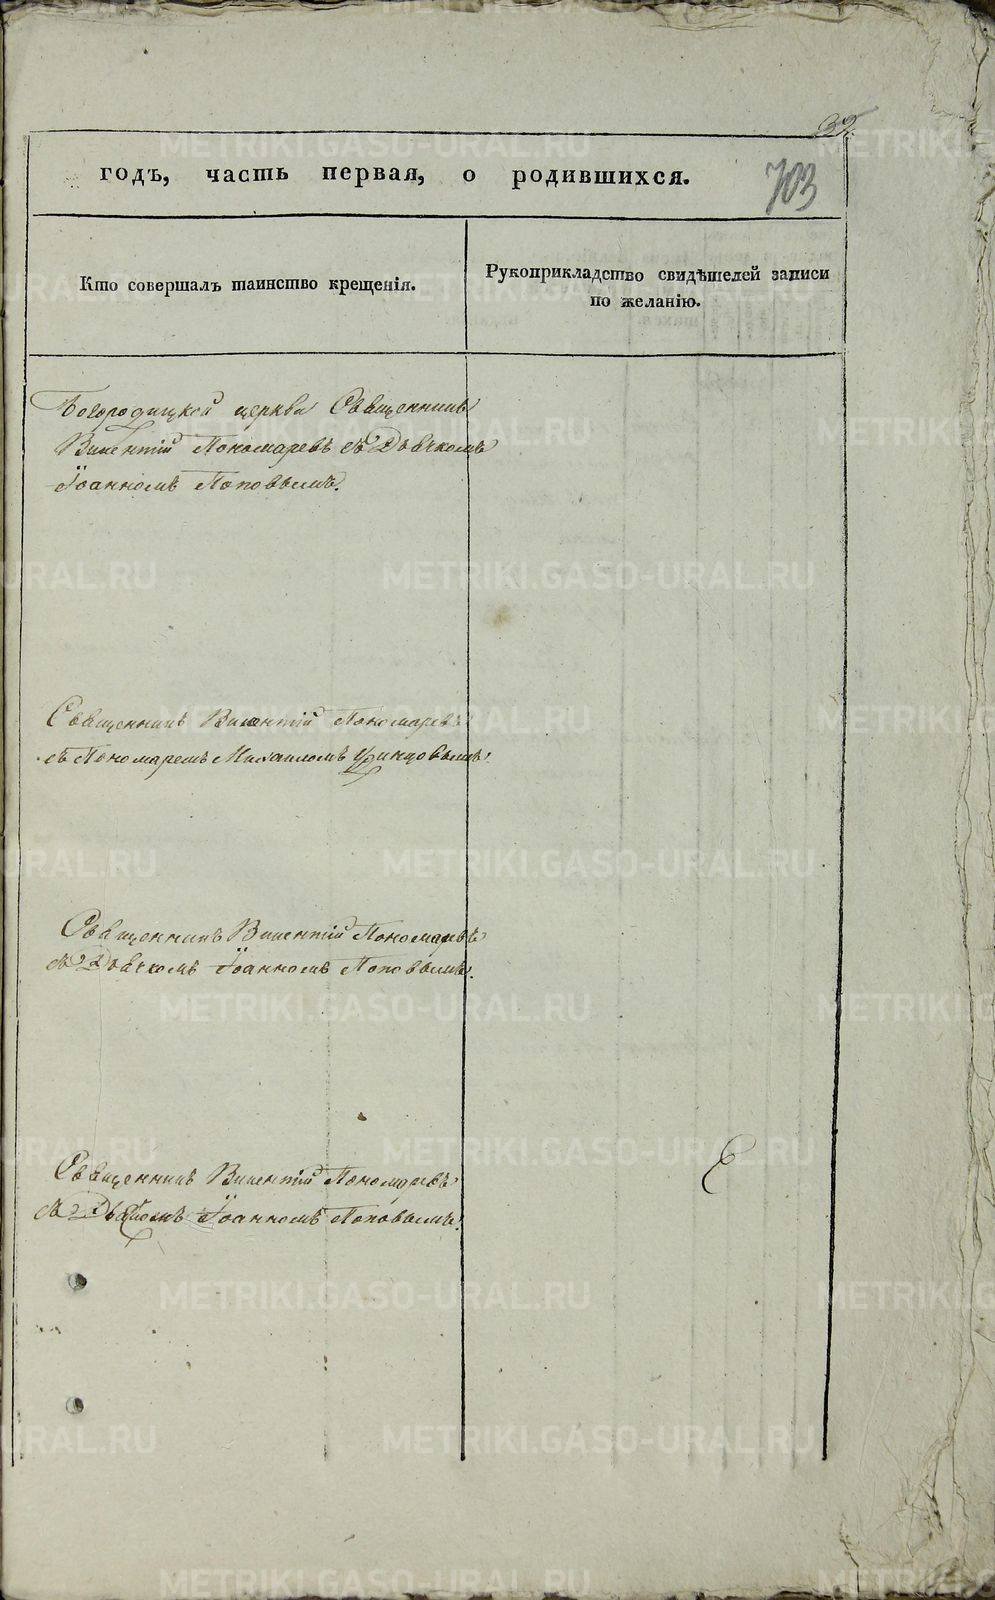 703
годъ, часть первая, о родившихся.
Кто совершалъ таинство крещенія.
Рукоприкладство свидѣтелей записи
по желанію.
Богородицкой церкви Священникъ
Викентій Пономаревъ съ Дьячкомъ
Іоанномъ Поповымъ.
Священникъ Викентій Пономаревъ
съ Пономаремъ Михаиломъ
Священникъ Викентій Пономаревъ
съ Дьячкомъ Іоанномъ Поповымъ.
Священникъ Викентій Пономаревъ
съ Дьячкомъ Іоанномъ Поповымъ.
METRIKI.GASO-URAL.RU